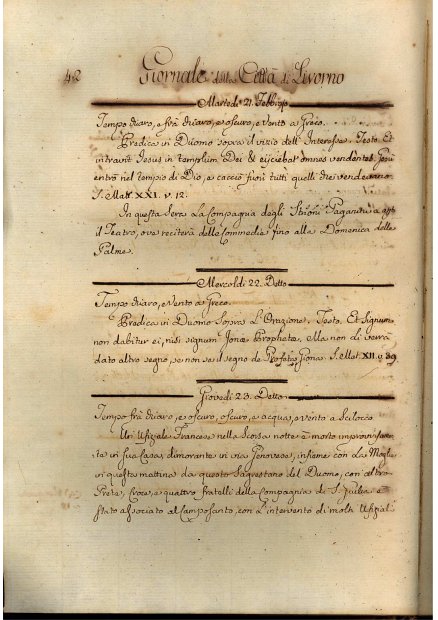 42 Giornale della Città di Livorno
Martedi 21. Febbrajo
Tempo chiaro, e frà chiaro, e oscuro, e vento a Greco.
Predica in Duomo sopra il vizio dell' Interesse. Testo. Et
intravit Jesus in templum Dei & eijciebat omnes vendentes. Gesù
entrò nel tempio di Dio, e cacciò fuori tutti quelli che vendevano
S. Matt. XXI. v. 12.
In questa Sera La Compagnia degli Strioni Paganini a
il Teatro, ove reciterà delle Commedie fino alla Domenica delle
Palme.
Mercoldi 22. Detto
Tempo chiaro, e vento a Greco.
Predica in Duomo Sopra L'Orazione. Testo. Et Signum
non dabitur ei, nisi signum Jonæ Prophetæ. Ma non di verrà
dato altro segno, se non se il segno de Profeta Giona. S. Mat. XII. v. 39.
Giovedi 23. Detto
Tempo frà chiaro, e oscuro, oscuro, e acqua, e vento a Scilocco.
Un Ufiziale Francese nella Scorsa notte è morto improvvisam
te in sua Casa, dimorante in via Genovese, insieme con la Moglie
in questa mattina da questo Sagrestano del Duomo, con altro
Prete, Croce, e quattro fratelli della Compagnia di S. Giulia è
stato associato al Camposanto, con L'intervento di molti Ufizial